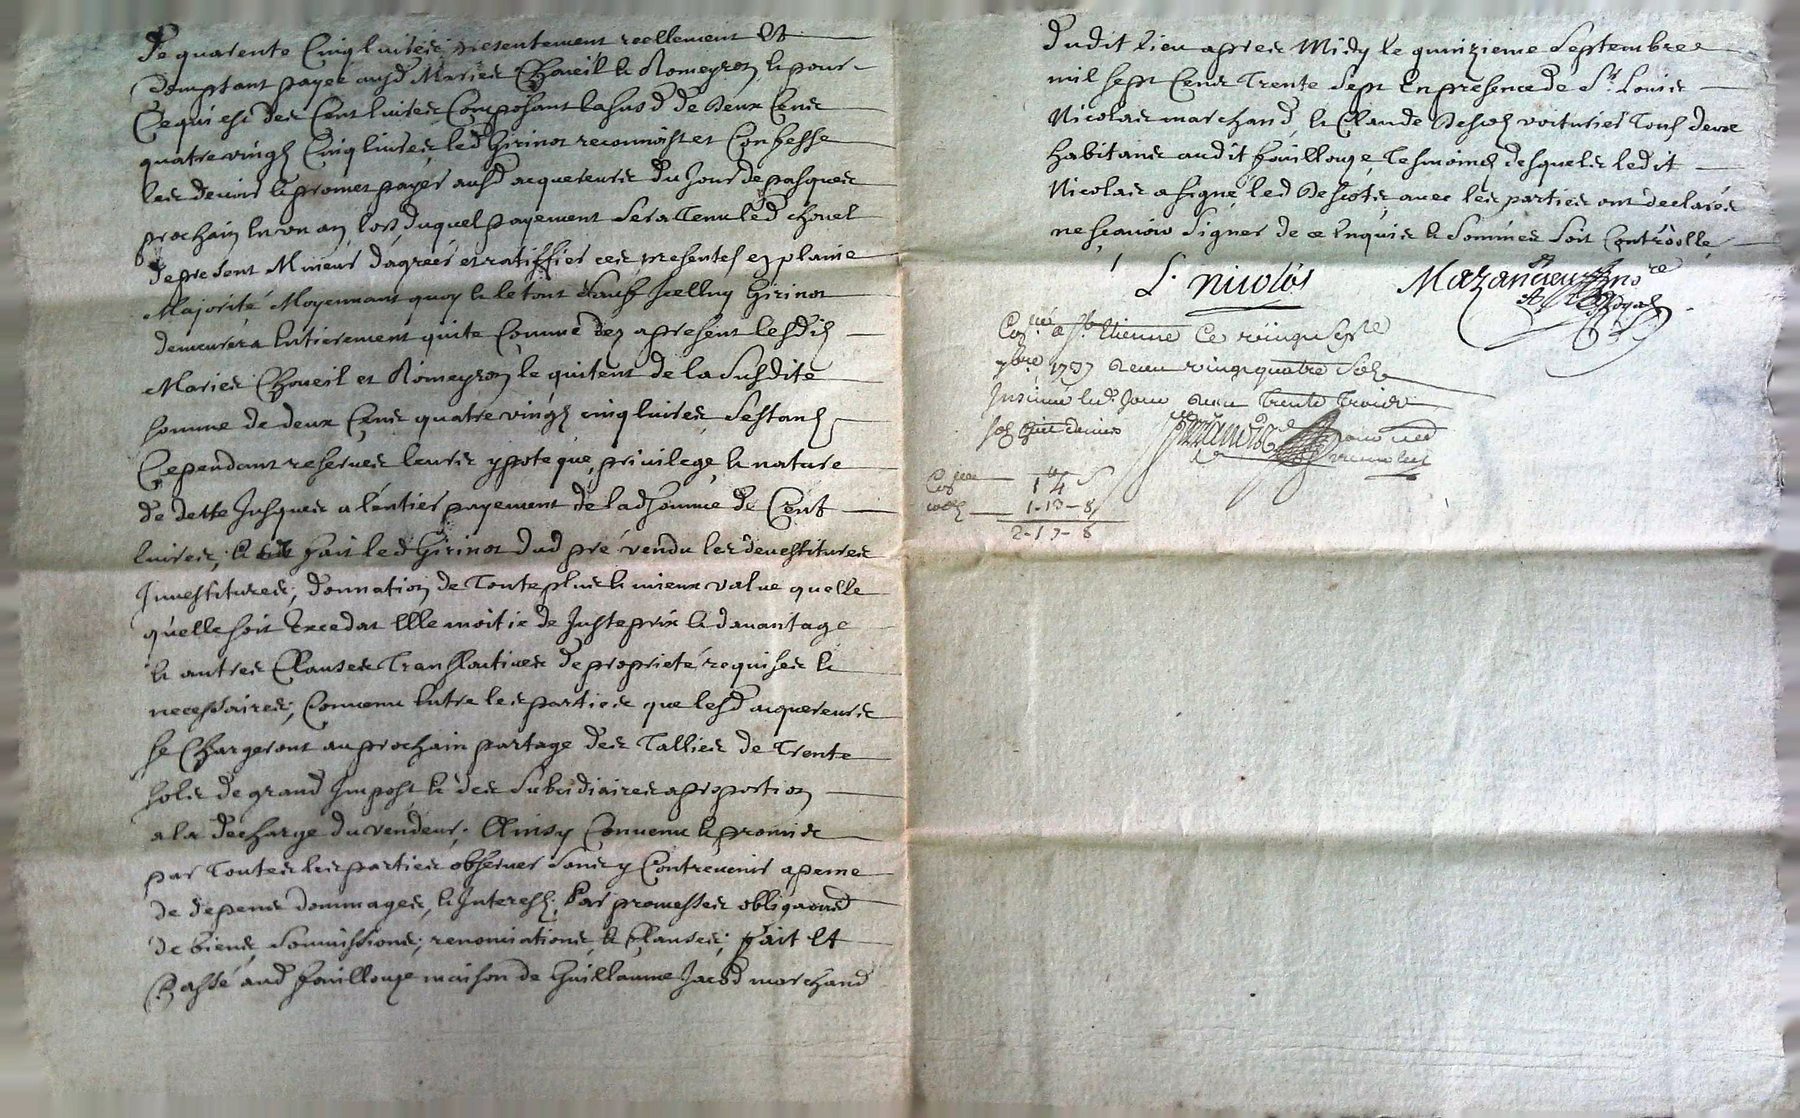 de quarente Cinq livres presentement reellement Et
Comptant payée ausd Maries Choveil & Romeyron, & pour
Ce qui est des Cent livres Composant lasusd de deux Cens
quatre vingt Cinq livres, led Girinot reconnoist et Confesse
les devoir & promet payer ausd acquereurs du Jour de pasques
prochain en un an, lors duquel payement sera Tenu led
de present Mineur d'agreer et ratiffier ces presentes en plaine
Majorité Moyennant quoy & le tout Girinot
demeurera Entierement quite Comme dez apresent lesdits
Maries Choveil et Romeyron le quitent de la Susdite
somme de deux Cens quatre vingt cinq livres, Sestant
Cependant reserves leurs ypoteque, privilege, & nature
de dette Jusques a l'entier payement de lad somme de Cent
livres, & fait led Girinot dud pré vendu les devestitures
Jnvestitures, donnation de Toute plus & mieux value quelle
qu'elle soit Excedat Elle moitie de Juste prix & davantage
& autres Clauses Translatives de proprieté requises &
necessaires, Convenu Entre les parties que lesd acquereurs
se Chargeront au prochain partage des Tallies de Trente
sols de grand Impost & des Subsidiaires a proportion
a la decharge du vendeur. Ainsy Convenu & promis
par Toutes les parties observer Sans y Contrevenir a peine
de depens dommages, & Interests, Par promesses obligaons
de biens, Soumissions, renonciations & Clauses, fait Et
Passé aud fouillouze maison de Guillaume Jacod marchand
dudit lieu apres Midy le quinzieme Septembre
mil sept Cens Trente Sept En presence de Sr. Louis
Nicolas marchand, & Claude voiturier Tous deux
habitans audit fouillouze, Tesmoins desquels ledit
Nicolas a signe, led avec les parties ont declarés
ne scavoir Signer de ce Enquis & Sommés Soit Contrôolle
L. nicolas
à St. Etienne Ce vingt Septe
7bre 1737 Receu vingt quatre Sols
Insinué led. Jour Receu Trente Trois
sols huit deniers
1 4 s
1-13-8
2-17-8